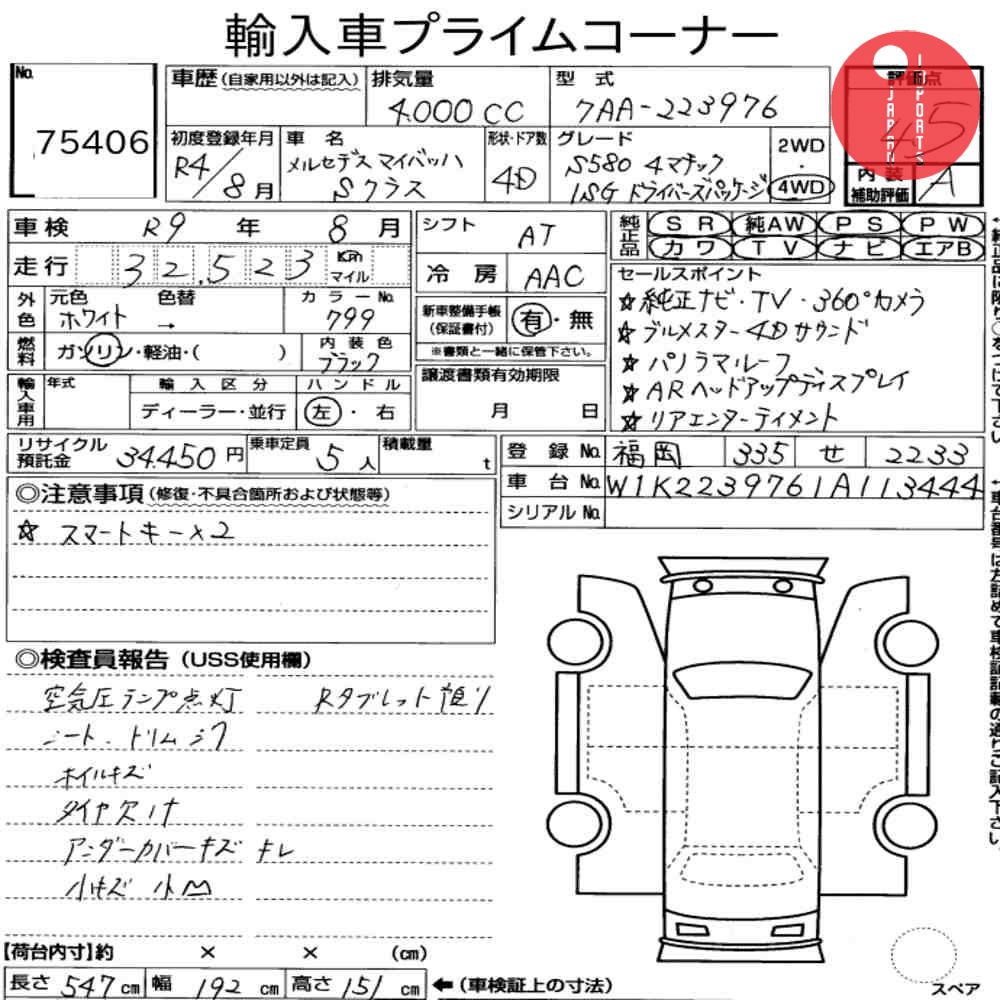 輸入車プライムコーナー
No. 75406
車歴(自家用以外は記入)
排気量 4.000 CC
型式 7AA-223976
JAPAN IMPORTS
評価点 4.5
初度登録年月 R4/8月
車名 メルセデスマイバッハ Sクラス
形状・ドア数 4D
グレード S580 4マチック
ISG ドライバーズパッケージ
2WD・4WD
内装補助評価 A
車検 R9年 8月
シフト AT
純正品 SR 純AW PS PW
カワ TV ナビ エアB
走行 32,523 Km マイル
冷房 AAC
セールスポイント
☆純正ナビ・TV・360°カメラ
☆ブルメスター4Dサウンド
☆パノラマルーフ
☆ARヘッドアップディスプレイ
☆リアエンターテイメント
外色 元色 ホワイト 色替 → カラーNo. 799
新車整備手帳(保証書付) 有・無
※書類と一緒に保管下さい。
燃料 ガソリン・軽油・( )
内装色 ブラック
輸入車用 年式 輸入区分 ハンドル
ディーラー・並行 左・右
譲渡書類有効期限
月 日
リサイクル預託金 34.450円
乗車定員 5人
積載量 t
登録No. 福岡 335 せ 2233
車台No. W1K2239761A113444
シリアルNo.
◎注意事項(修復・不具合箇所および状態等)
☆ スマートキー×2
◎検査員報告(USS使用欄)
空気圧ランプ点灯 Rタブレット有り
シート・トリムシワ
ホイルキズ
タイヤ欠け
アンダーカバーキズ キレ
小キズ 小凹
【荷台内寸】約 × × (cm)
長さ 547cm 幅 192cm 高さ 151cm ←(車検証上の寸法)
スペア
←車台番号は左詰めで車検証記載の通りご記入下さい。